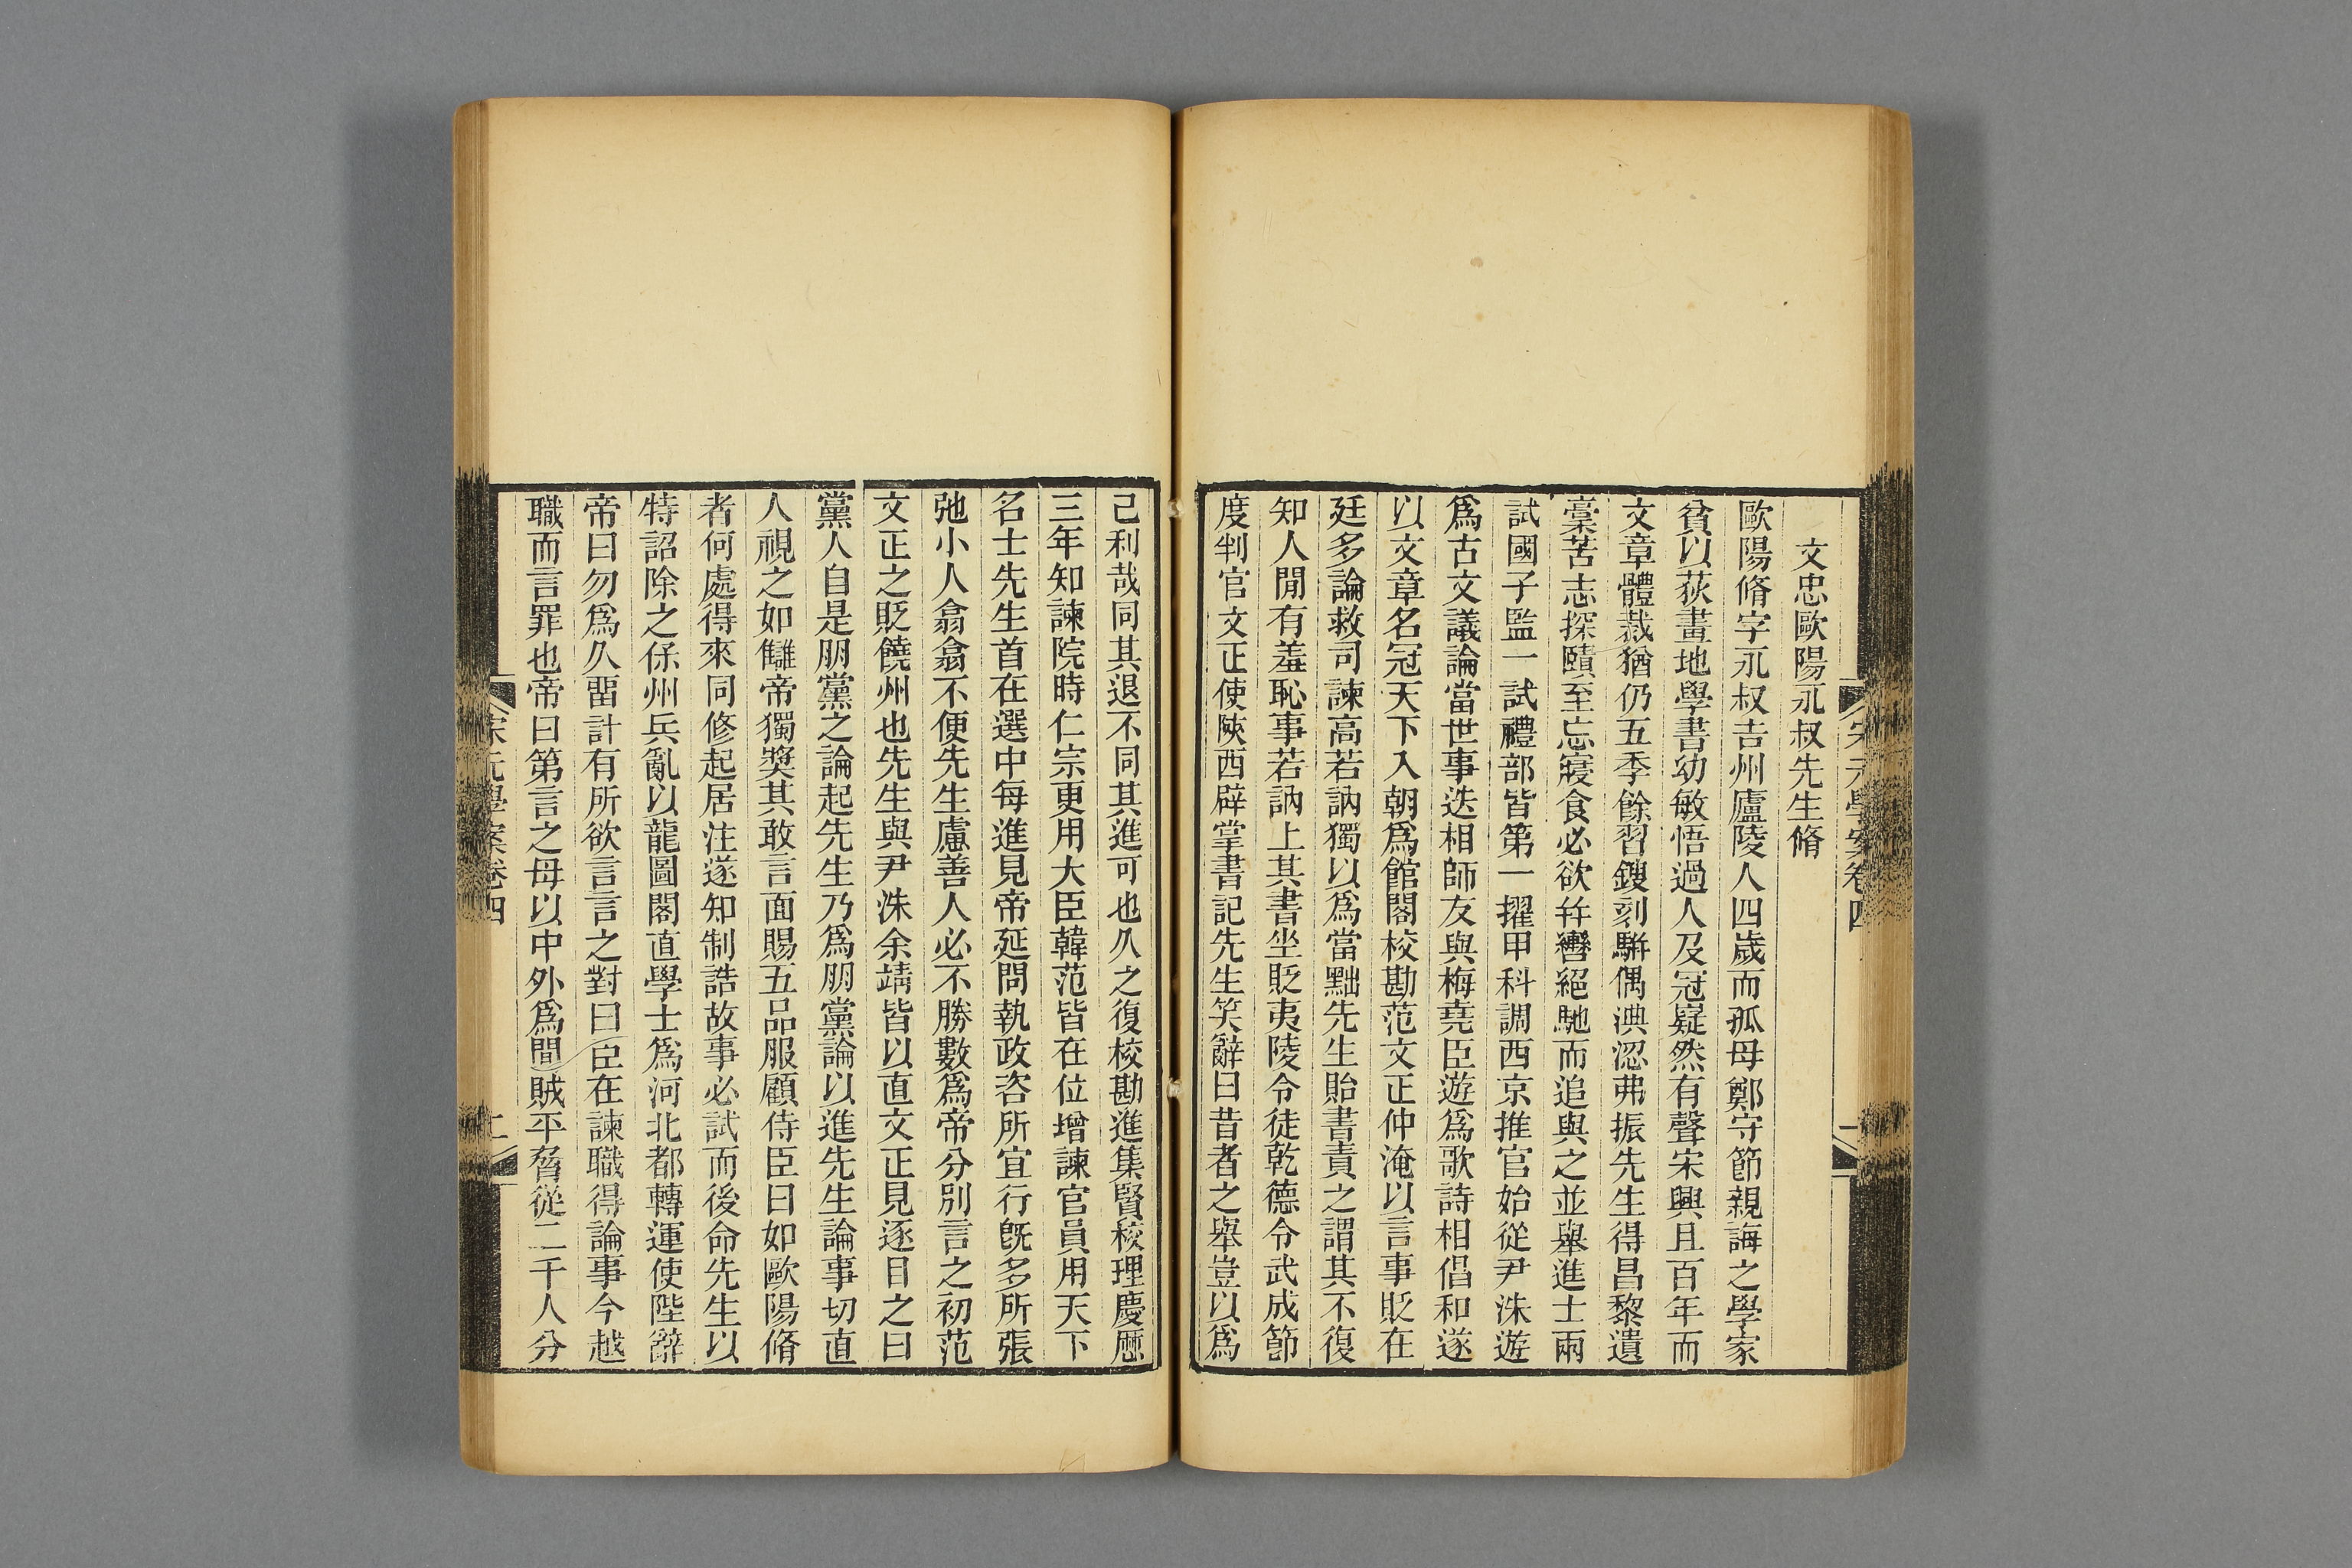 宋元學案卷四
文忠歐陽永叔先生脩
歐陽脩字永叔吉州廬陵人四歲而孤母鄭守節親誨之學家
貧以荻畫地學書幼敏悟過人及冠嶷然有聲宋興且百年而
文章體裁猶仍五季餘習鎪刻駢偶淟涊弗振先生得昌黎遺
稾苦志探賾至忘寢食必欲幷轡絕馳而追與之並舉進士兩
試國子監一試禮部皆第一擢甲科調西京推官始從尹洙遊
爲古文議論當世事迭相師友與梅堯臣遊爲歌詩相倡和遂
以文章名冠天下入朝爲館閣校勘范文正仲淹以言事貶在
廷多論救司諫高若訥獨以爲當黜先生貽書責之謂其不復
知人閒有羞恥事若訥上其書坐貶夷陵令徙乾德令武成節
度判官文正使陝西辟掌書記先生笑辭曰昔者之舉豈以爲
己利哉同其退不同其進可也久之復校勘進集賢校理慶厯
三年知諫院時仁宗更用大臣韓范皆在位增諫官員用天下
名士先生首在選中每進見帝延問執政咨所宜行旣多所張
弛小人翕翕不便先生慮善人必不勝數爲帝分別言之初范
文正之貶饒州也先生與尹洙余靖皆以直文正見逐目之曰
黨人自是朋黨之論起先生乃爲朋黨論以進先生論事切直
人視之如讎帝獨獎其敢言面賜五品服顧侍臣曰如歐陽脩
者何處得來同修起居注遂知制誥故事必試而後命先生以
特詔除之保州兵亂以龍圖閣直學士爲河北都轉運使陛辭
帝曰勿爲久畱計有所欲言言之對曰臣在諫職得論事今越
職而言罪也帝曰第言之毋以中外爲閒賊平脅從二千人分
宋元學案卷四
二